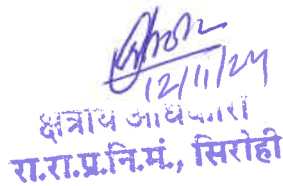 12/11/24
क्षेत्रीय अधिकारी
रा.रा.प्र.नि.मं., सिरोही